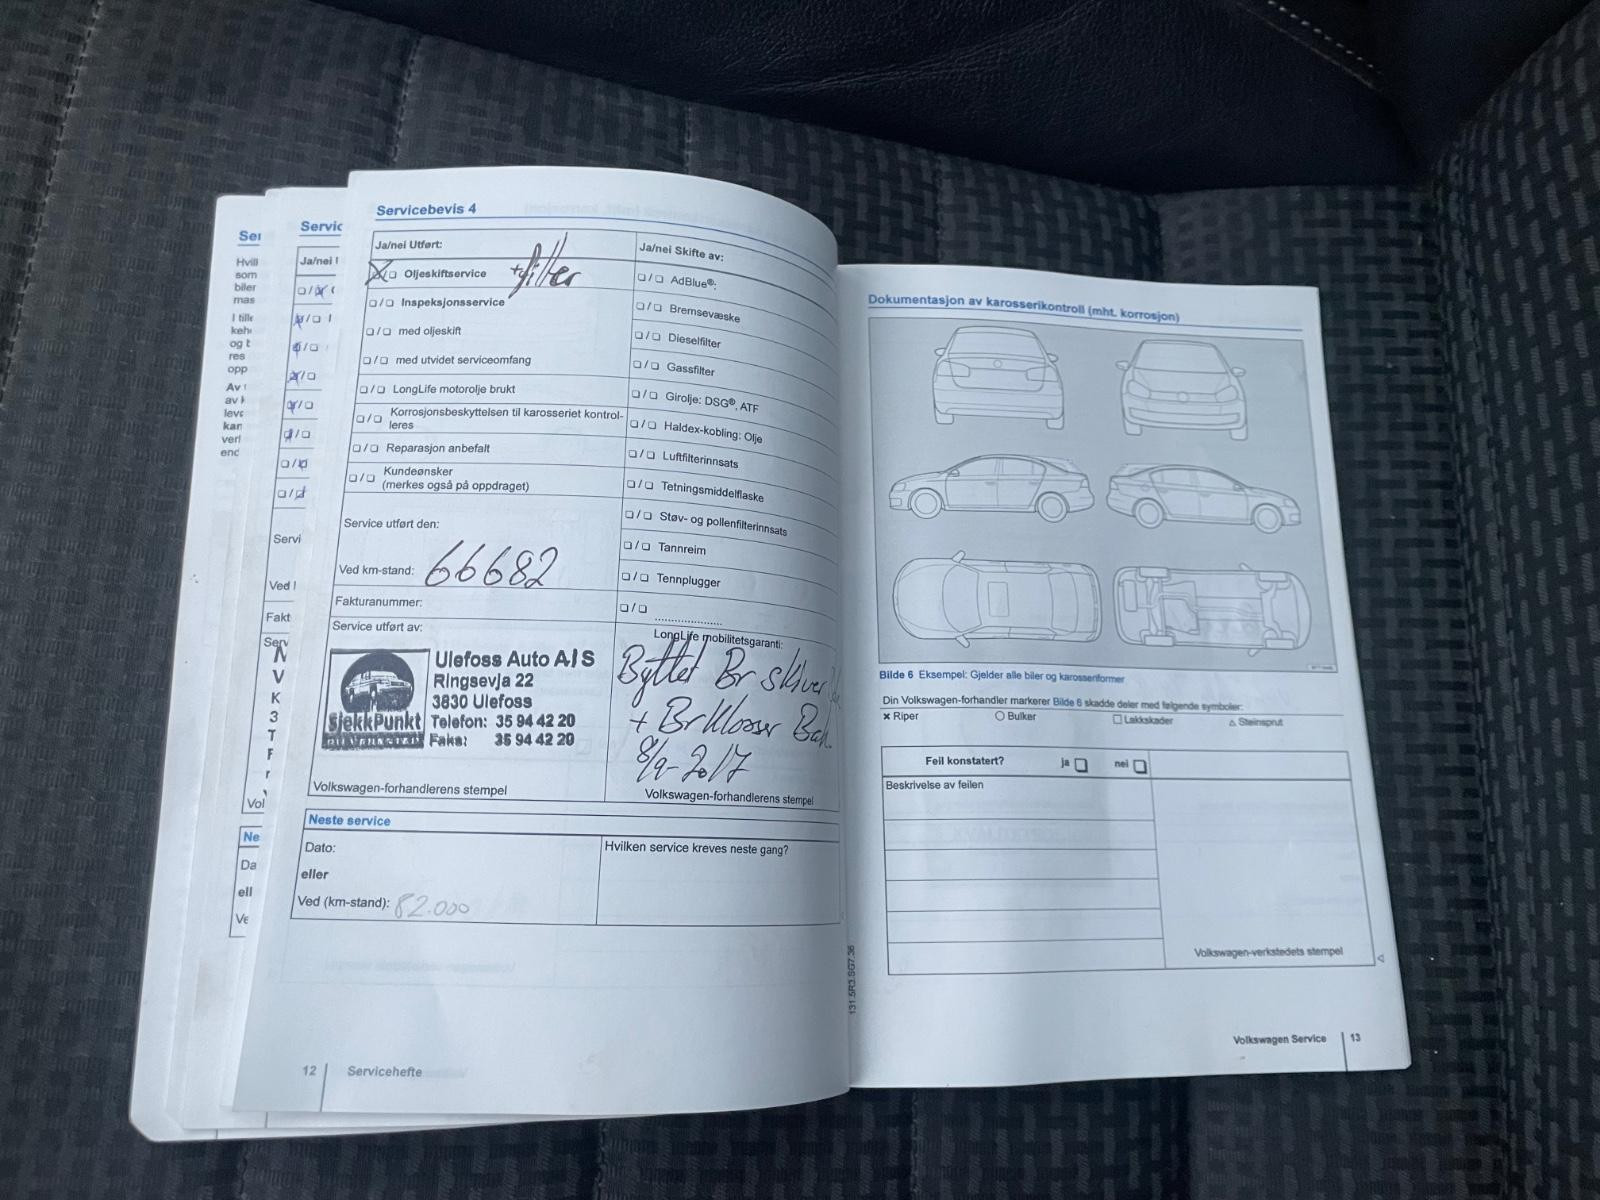 Ser
Hvill
som
biler
mas
I tille
kehø
og t
res
opp
Av
av k
leve
kan
verl
end
Vol
Ne
Da
ell
Ve
Servic
Ja/nei
Servi
Ved
Fakt
Serv
N
V
K
3
T
F
Servicebevis 4
Ja/nei Utført:
Oljeskiftservice +filter
Inspeksjonsservice
med oljeskift
med utvidet serviceomfang
LongLife motorolje brukt
Korrosjonsbeskyttelsen til karosseriet kontrol-
leres
Reparasjon anbefalt
Kundeønsker
(merkes også på oppdraget)
Service utført den:
Ved km-stand: 66682
Fakturanummer:
Service utført av:
SjekkPunkt
Ulefoss Auto A/S
Ringsevja 22
3830 Ulefoss
Telefon: 35 94 42 20
Faks: 35 94 42 20
Volkswagen-forhandlerens stempel
Ja/nei Skifte av:
AdBlue®:
Bremsevæske
Dieselfilter
Gassfilter
Girolje: DSG®, ATF
Haldex-kobling: Olje
Luftfilterinnsats
Tetningsmiddelflaske
Støv- og pollenfilterinnsats
Tannreim
Tennplugger
LongLife mobilitetsgaranti:
Byttet Br skiver
+ Br Klosser Bak
8/9-2017
Volkswagen-forhandlerens stempel
Neste service
Dato:
eller
Ved (km-stand): 82.000
Hvilken service kreves neste gang?
12 Servicehefte
131.5R3.SG7.36
Dokumentasjon av karosserikontroll (mht. korrosjon)
Bilde 6 Eksempel: Gjelder alle biler og karosseriformer
Din Volkswagen-forhandler markerer Bilde 6 skadde deler med følgende symboler:
× Riper ○ Bulker □ Lakkskader △ Steinsprut
Feil konstatert? ja □ nei □
Beskrivelse av feilen
Volkswagen-verkstedets stempel
Volkswagen Service 13